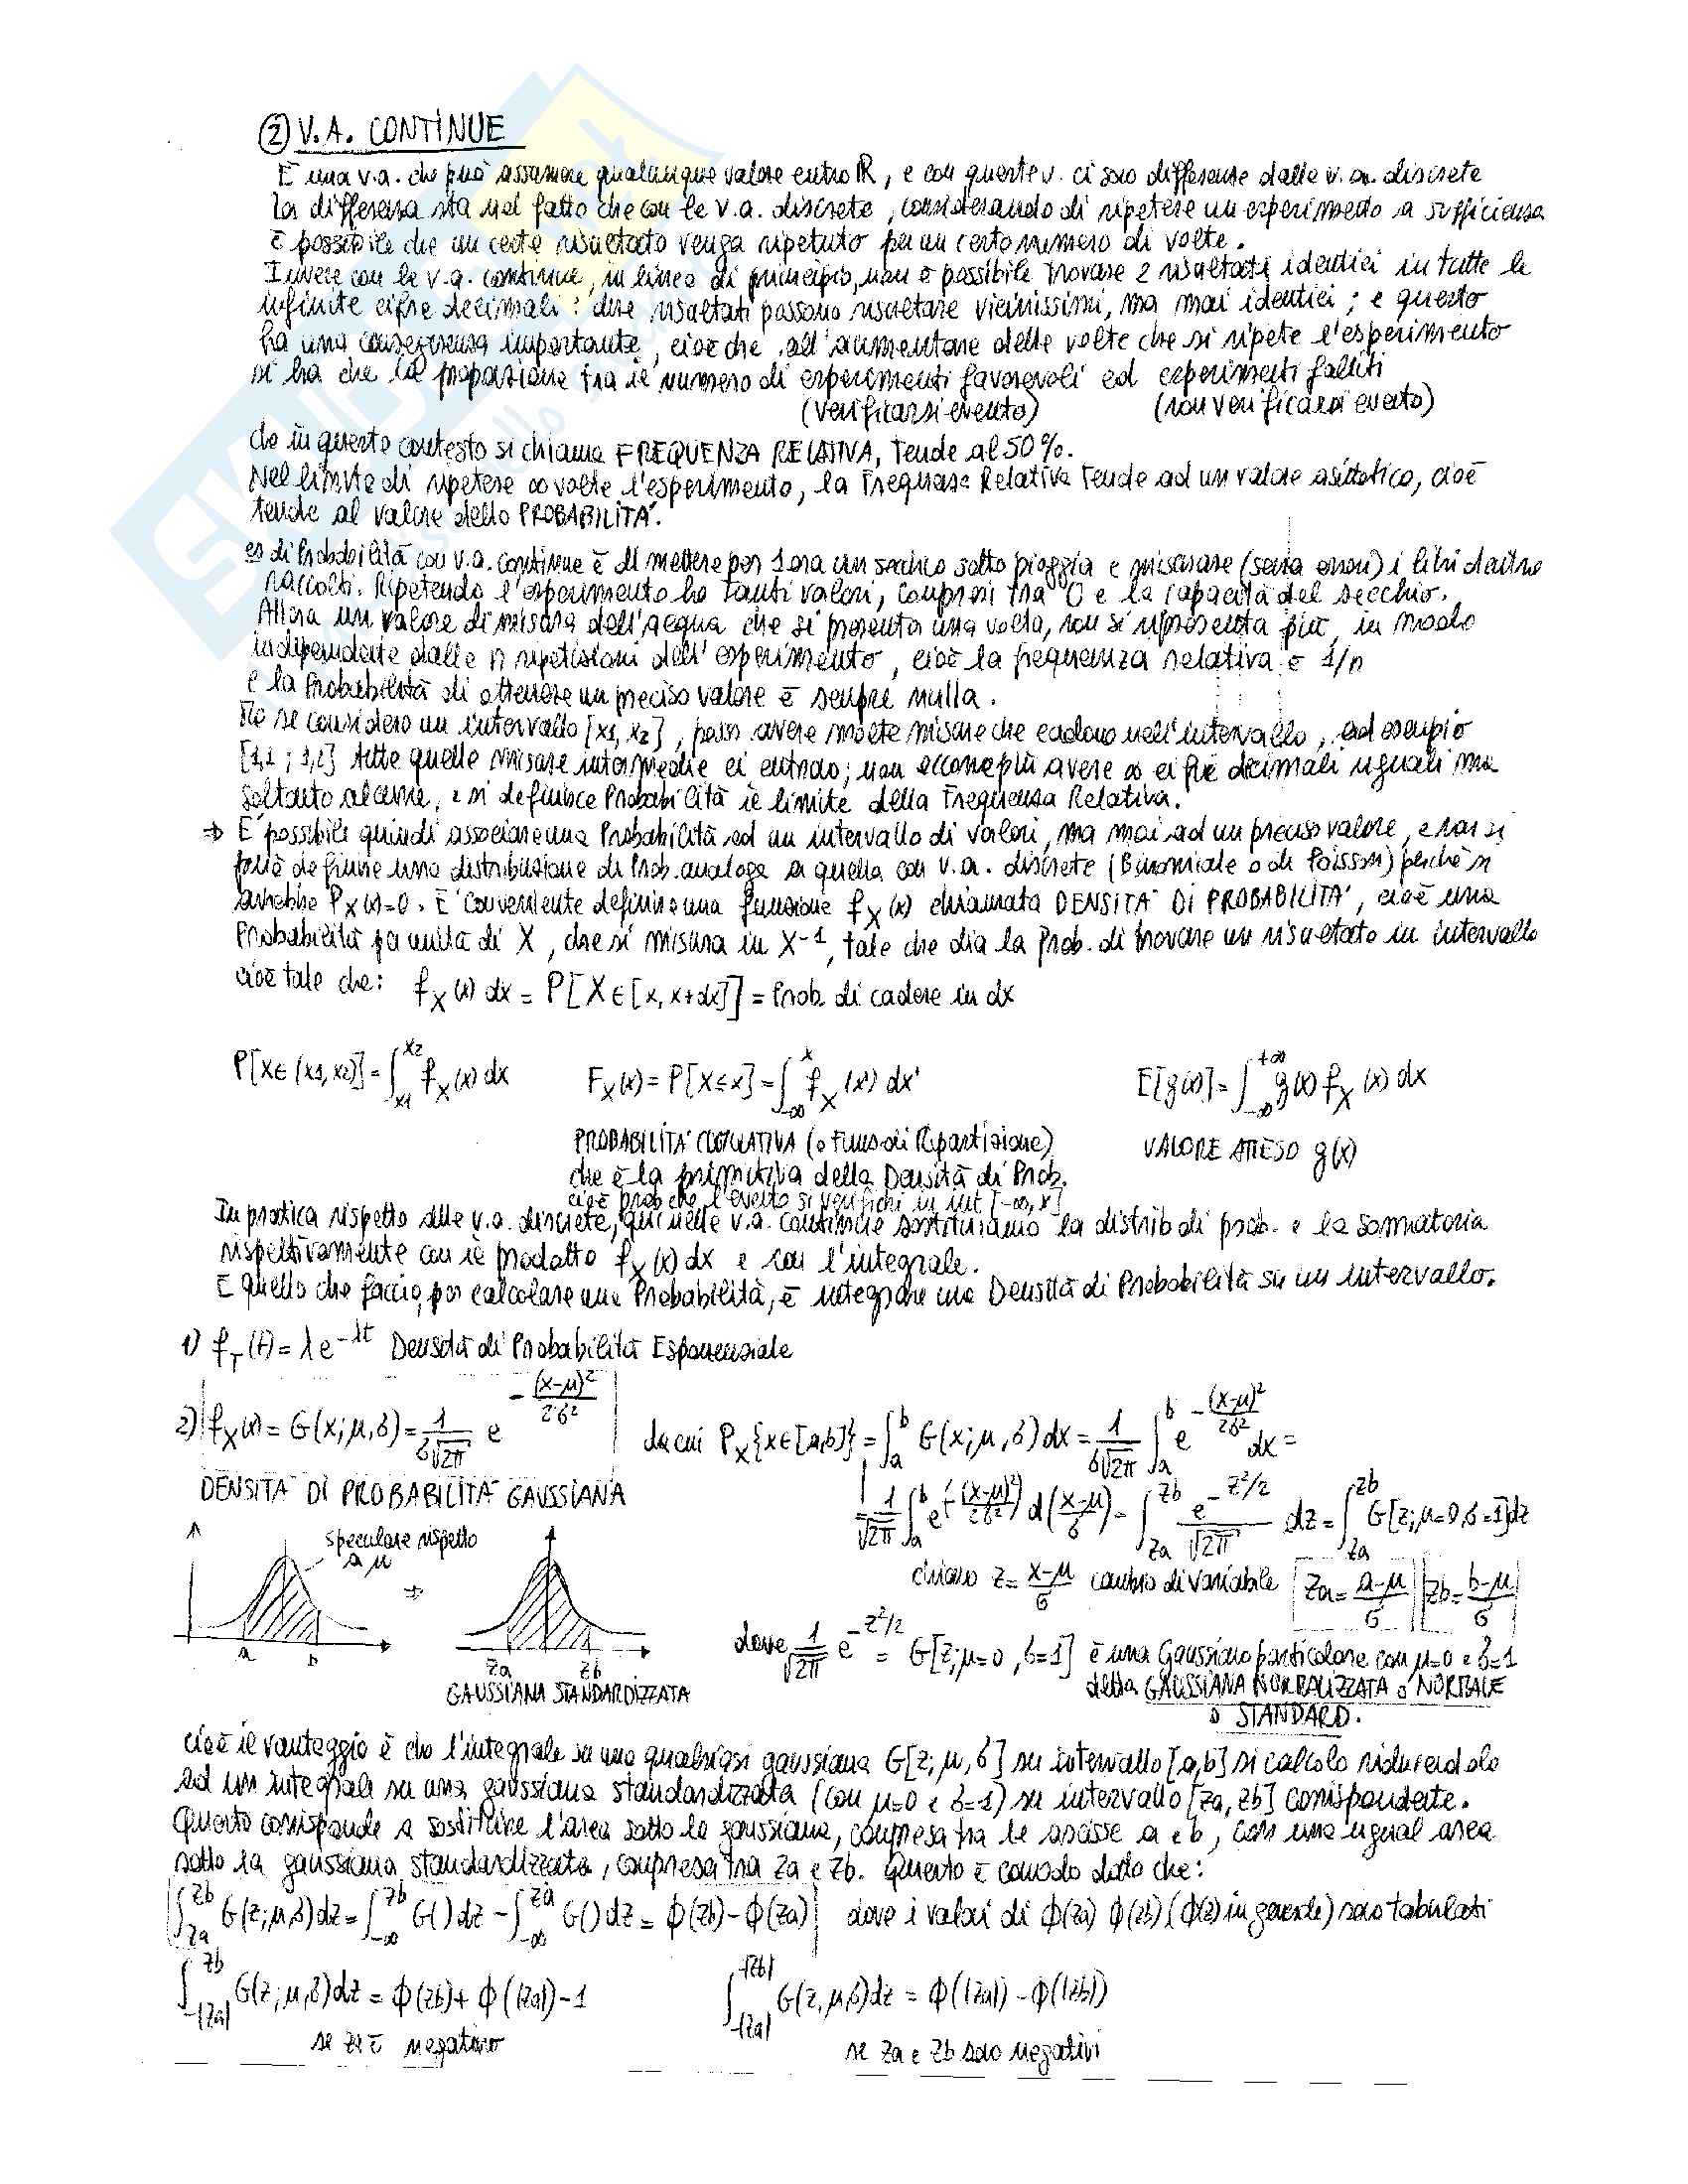 ② V.A. CONTINUE
È una v.a. che può assumere qualunque valore entro ℝ, e con queste v. ci sono differenze dalle v.a. discrete
La differenza sta nel fatto che con le v.a. discrete, considerando di ripetere un esperimento a sufficienza
è possibile che un certo risultato venga ripetuto per un certo numero di volte.
Invece con le v.a. continue, in linea di principio, non è possibile trovare 2 risultati identici in tutte le
infinite cifre decimali: due risultati possono risultare vicinissimi, ma mai identici; e questo
ha una conseguenza importante, cioè che all'aumentare delle volte che si ripete l'esperimento
si ha che la proporzione tra il numero di esperimenti favorevoli ed esperimenti falliti
(verificarsi evento) (non verificarsi evento)
che in questo contesto si chiama FREQUENZA RELATIVA, tende al 50%.
Nel limite di ripetere ∞ volte l'esperimento, la Frequenza Relativa tende ad un valore asintotico, cioè
tende al valore della PROBABILITÀ.
es di Probabilità con v.a. continue è di mettere per 1 ora un secchio sotto pioggia e misurare (senza errori) i litri d'acqua
raccolti. Ripetendo l'esperimento ho tanti valori, compresi tra 0 e la capacità del secchio.
Allora un valore di misura dell'acqua che si presenta una volta, non si ripresenta più, in modo
indipendente dalle n ripetizioni dell'esperimento, cioè la frequenza relativa è 1/n
e la Probabilità di ottenere un preciso valore è sempre nulla.
Ma se considero un intervallo [x1, x2], posso avere molte misure che cadono nell'intervallo, ad esempio
[1,1 ; 1,2] tutte quelle misure intermedie ci entrano; non occorre più avere ∞ cifre decimali uguali ma
soltanto alcune, e si definisce Probabilità il limite della Frequenza Relativa.
⇒ È possibile quindi associare una Probabilità ad un intervallo di valori, ma mai ad un preciso valore, e non si
potrà definire una distribuzione di Prob. analoga a quella con v.a. discrete (Binomiale o di Poisson) perchè si
avrebbe P_X(x)=0. È conveniente definire una funzione f_X(x) chiamata DENSITÀ DI PROBABILITÀ, cioè una
Probabilità per unità di X, che si misura in X⁻¹, tale che dia la Prob. di trovare un risultato in intervallo
cioè tale che: f_X(x) dx = P[X∈[x, x+dx]] = Prob. di cadere in dx
P[X∈(x1,x2)] = ∫_{x1}^{x2} f_X(x) dx F_X(x) = P[X≤x] = ∫_{-∞}^{x} f_X(x') dx' E[g(x)] = ∫_{-∞}^{+∞} g(x) f_X(x) dx
PROBABILITÀ CUMULATIVA (o Funz. di Ripartizione) VALORE ATTESO g(x)
che è la primitiva della Densità di Prob.
cioè prob che l'evento si verifichi in int [-∞, x]
In pratica rispetto alle v.a. discrete, qui nelle v.a. continue sostituiamo la distrib di prob. e la sommatoria
rispettivamente con il prodotto f_X(x) dx e con l'integrale.
E quello che faccio, per calcolare una Probabilità, è integrare una Densità di Probabilità su un intervallo.
1) f_T(t) = λe^{-λt} Densità di Probabilità Esponenziale
2) f_X(x) = G(x; μ, σ) = 1/(σ√2π) e^{-(x-μ)²/2σ²} da cui P_X{x∈[a,b]} = ∫_a^b G(x; μ, σ) dx = 1/(σ√2π) ∫_a^b e^{-(x-μ)²/2σ²} dx =
DENSITÀ DI PROBABILITÀ GAUSSIANA
= 1/√2π ∫_a^b e^{(-(x-μ)²/2σ²)} d((x-μ)/σ) = ∫_{za}^{zb} e^{-z²/2}/√2π dz = ∫_{za}^{zb} G[z; μ=0, σ=1] dz
speculare rispetto
a μ
⇒
chiamo z = (x-μ)/σ cambio di variabile za = (a-μ)/σ zb = (b-μ)/σ
a b
za zb
GAUSSIANA STANDARDIZZATA
dove 1/√2π e^{-z²/2} = G[z; μ=0, σ=1] è una Gaussiana particolare con μ=0 e σ=1
detta GAUSSIANA NORMALIZZATA o NORMALE
o STANDARD.
cioè il vantaggio è che l'integrale su una qualsiasi gaussiana G[z; μ, σ] su intervallo [a,b] si calcola riducendolo
ad un integrale su una gaussiana standardizzata (con μ=0 e σ=1) su intervallo [za, zb] corrispondente.
Questo corrisponde a sostituire l'area sotto la gaussiana, compresa tra le ascisse a e b, con una ugual area
sotto la gaussiana standardizzata, compresa tra za e zb. Questo è comodo dato che:
∫_{za}^{zb} G(z; μ, σ) dz = ∫_{-∞}^{zb} G() dz - ∫_{-∞}^{za} G() dz = Φ(zb) - Φ(za) dove i valori di Φ(za) Φ(zb) (Φ(z) in generale) sono tabulati
∫_{-|za|}^{zb} G(z; μ, σ) dz = Φ(zb) + Φ(|za|) - 1 ∫_{-|za|}^{-|zb|} G(z, μ, σ) dz = Φ(|za|) - Φ(|zb|)
se è negativo se za e zb sono negativi